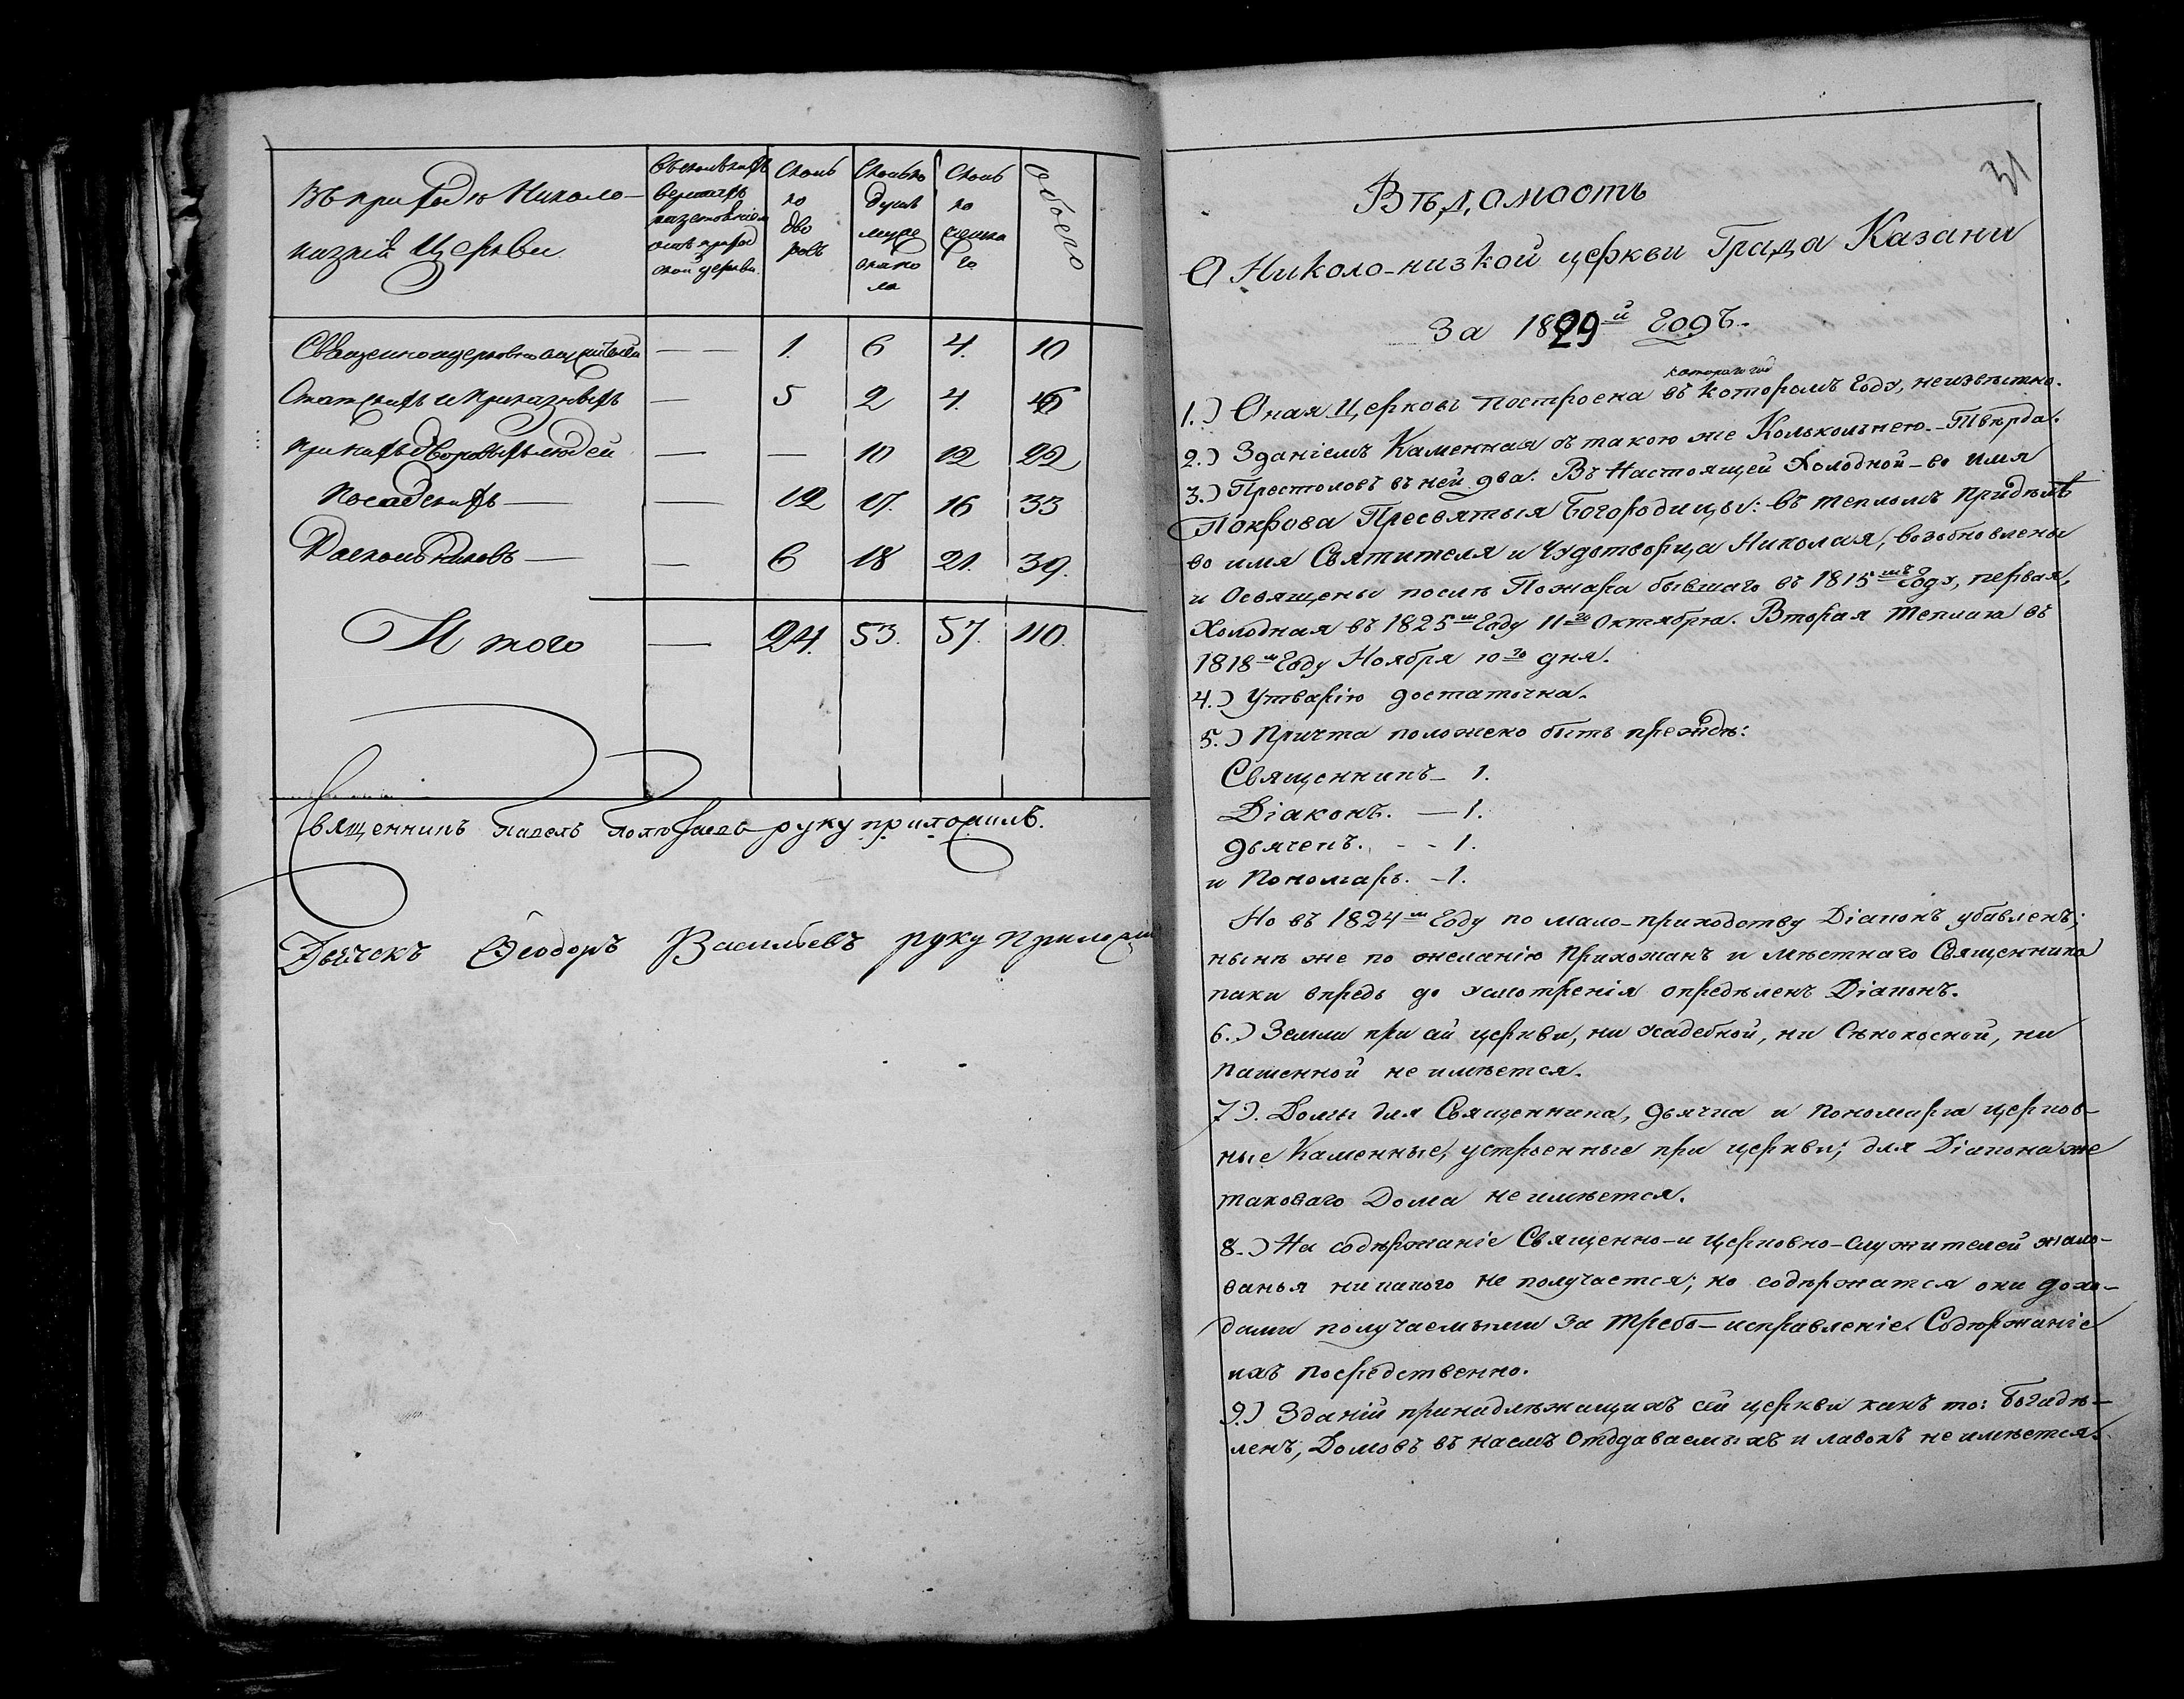 Въ приходѣ Николо-
низкій Церкви
Въ сколькихъ верстахъ разстояніем отъ приход ской церкви.
Сколь ко дво ровъ
Сколько душъ муже скаго по ла
Сколь ко женска го
Обоего
Священноцерковнослужителей — — 1. 6 4. 10
Статскихъ и Приказныхъ — 5 2 4. 6
При нихъ дворовыхъ людей — — 10 12 22
Посадскихъ — — 12 17. 16 33
Раскольниковъ — — 6 18 21. 39.
Итого — 24. 53. 57. 110.
Священникъ Павелъ руку приложилъ.
Дьячекъ Ѳеодоръ Васильевъ руку прилож
31
Вѣдомость
О Николо-низкой церкви Града Казани
За 1829й Годъ.
котораго год
1.) Оная Церковь построена въ которомъ Году, неизвѣстно.
2.) Зданіемъ Каменная съ такою же Колькольнею. - Тверда.
3.) Престоловъ въ ней два. Въ Настоящей Холодной - во Имя
Покрова Пресвятыя Богородицы: въ тепломъ придѣлѣ
во имя Святителя и Чудотворца Николая, возобновлены
и Освящены послѣ Пожара бывшаго въ 1815мъ Году, первая,
Холодная въ 1825м Году 11го Октября. Вторая теплая въ
1818м Году Ноября 10го дня.
4.) Утварію достаточна.
5.) Причта положено быть прежде:
Священникъ - 1.
Діаконъ. — 1.
дьячекъ. - - 1.
и Пономарь. - 1.
Но въ 1824м Году по мало-приходству Діаконъ убавленъ;
нынѣ же по желанію Прихожанъ и мѣстнаго Священника
паки впредь до усмотренія опредѣленъ Діаконъ.
6.) Земли при сей церкви, ни усадебной, ни Сѣнокосной, ни
пашенной не имѣется.
7). Домы для Священника, дьячка и пономаря церков-
ные Каменные, устроенные при церкви; для Діакона же
таковаго Дома не имѣется.
8.) На содѣржаніе Священно-и Церковно-служителей жало-
ванья никакого не получается; но содѣржатся они дохо-
дами получаемыми за требо-исправленіе. Содѣржаніе
ихъ посредственно.
9.) Зданій принадлѣжащихъ сей церкви какъ то: Богадѣ-
ленъ, Домовъ въ наемъ отдаваемыхъ и лавокъ не имѣется.